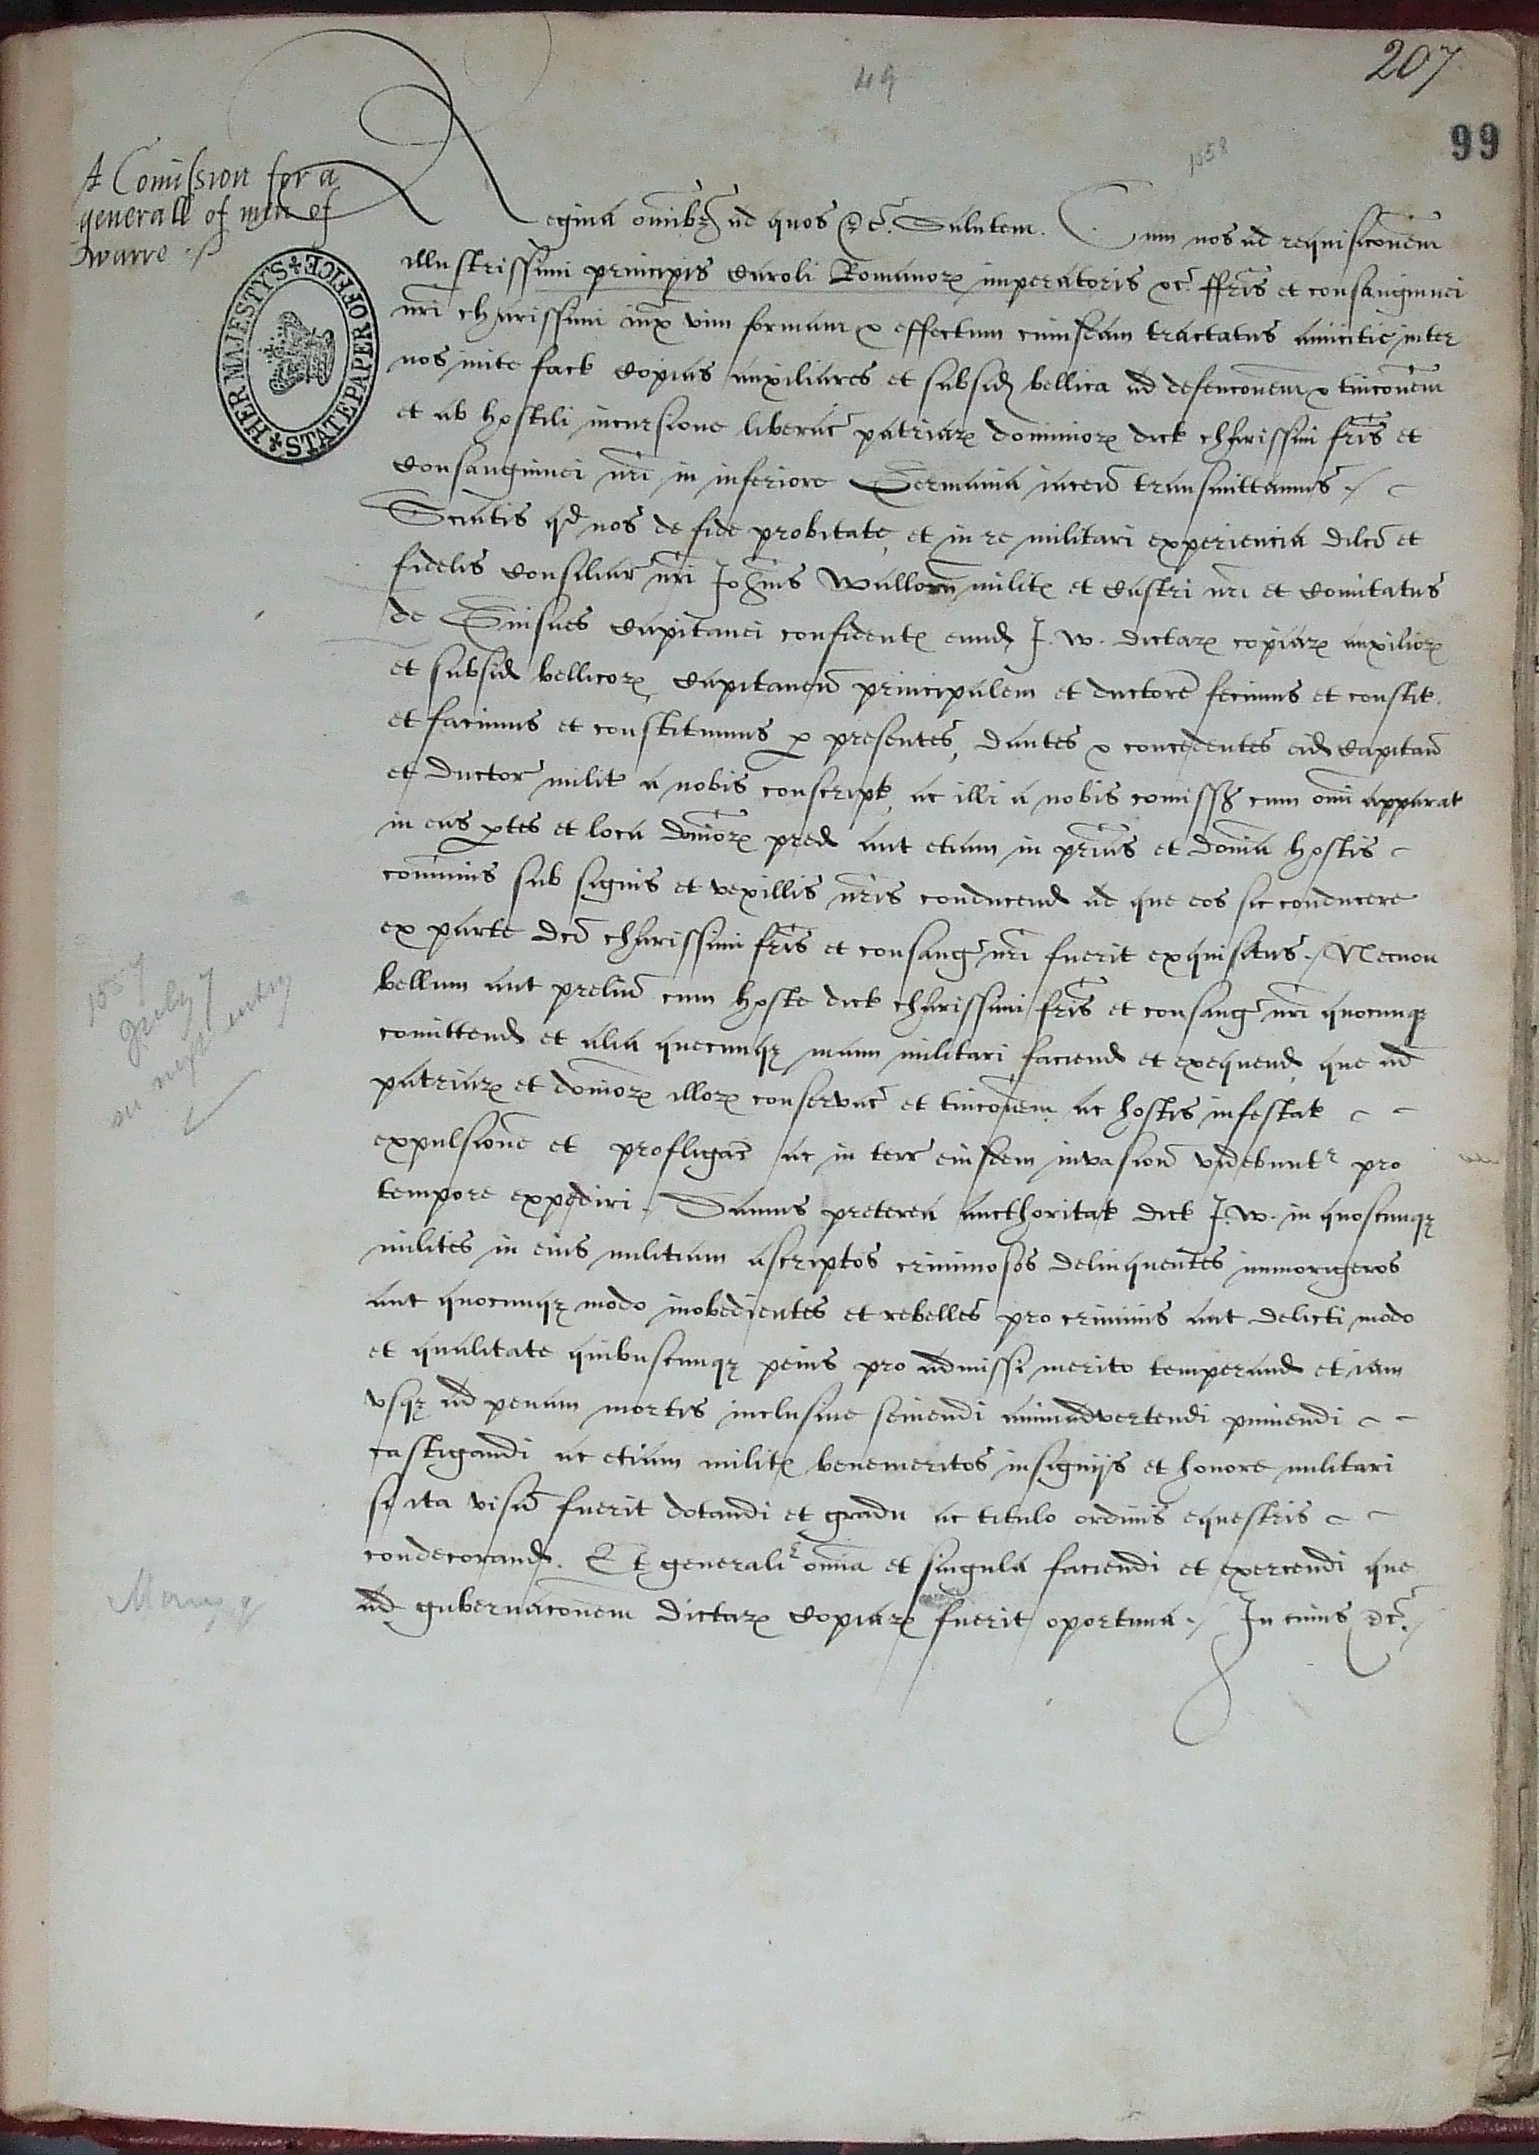 207
49
99
1558
A Comission for a
generall of men of
warre ./
HER MAJESTY'S STATE PAPER OFFICE
Regina omībȝ ad quos &c̄. Salutem. Cum nos ad requisicōnem
illustrissimi principis Caroli Romanorꝝ imperatoris &c̄ ffrīs et consanguinei
nrī charissimi iux̄ vim formam & effectum cuiusdam tractatus amicitie inter
nos inite fact copias auxiliares et subsid bellica ad defenconem & tuiconem
et ab hostili incursione liberac̄ patriarꝝ dominiorꝝ dict charissimi frīs et
Consanguinei nrī in inferiore Germania iacen̄ transmittamus ./
Sciatis qd nos de fide probitate, et in re militari experiencia dilcī et
fidelis Consiliar̄ nrī Johīns Wallopp militꝭ et Castri nrī et Comitatus
de Guisnes Capitanei confidentꝭ eund J. W. dictarꝝ copiarꝝ auxiliorꝝ
et subsid bellicorꝝ Capitaneū principalem et ductorē fecimus et constit.
et facimus et constituimus ꝑ presentes, dantes & concedentes eid Capitan̄
et ductor̄ milit a nobis conscript, ac illi a nobis comiss̄ cum omī apparat
in eas ꝑtes et loca domiorꝝ pred aut etiam in prīas et domīa hostis
comunis sub signis et vexillis nrīs conducend ad que eos sic conducere
ex parte dcī charissimi frīs et consanḡ nrī fuerit exquisitus ./ Necnon
bellum aut preliū cum hoste dict charissimi frīs et consanḡ nrī quocunqȝ
comittend et alia quecunqȝ manu militari faciend et exequend, que ad
patriarꝝ et domiorꝝ illorꝝ conservac̄ et tuiconem ac hostis infestat
expulsione et profligac̄ ac in terr̄ eiusdem invasion̄ videbuntr pro
tempore expediri. Damus preterea aucthoritat dict J. W. in quoscunqȝ
milites in eius militiam ascriptos criminosos delinquentes immorigeros
aut quocunqȝ modo inobedientes et rebelles pro criminis aut delicti modo
et qualitate quibuscunqȝ penis pro admissi merito temperand etiam
vsqȝ ad penam mortis inclusive seuiendi animadvertendi puniendi
castigandi ac etiam militꝭ benemeritos insignijs et honore militari
si ita visū fuerit dotandi et gradu ac titulo ordinis equestris
condecorand. Et generalir omīa et singula faciendi et exercendi que
ad gubernacōnem dictarꝝ Copiarꝝ fuerit oportuna ./ In cuius &c̄./
1557
July 7
on next entry
Mary